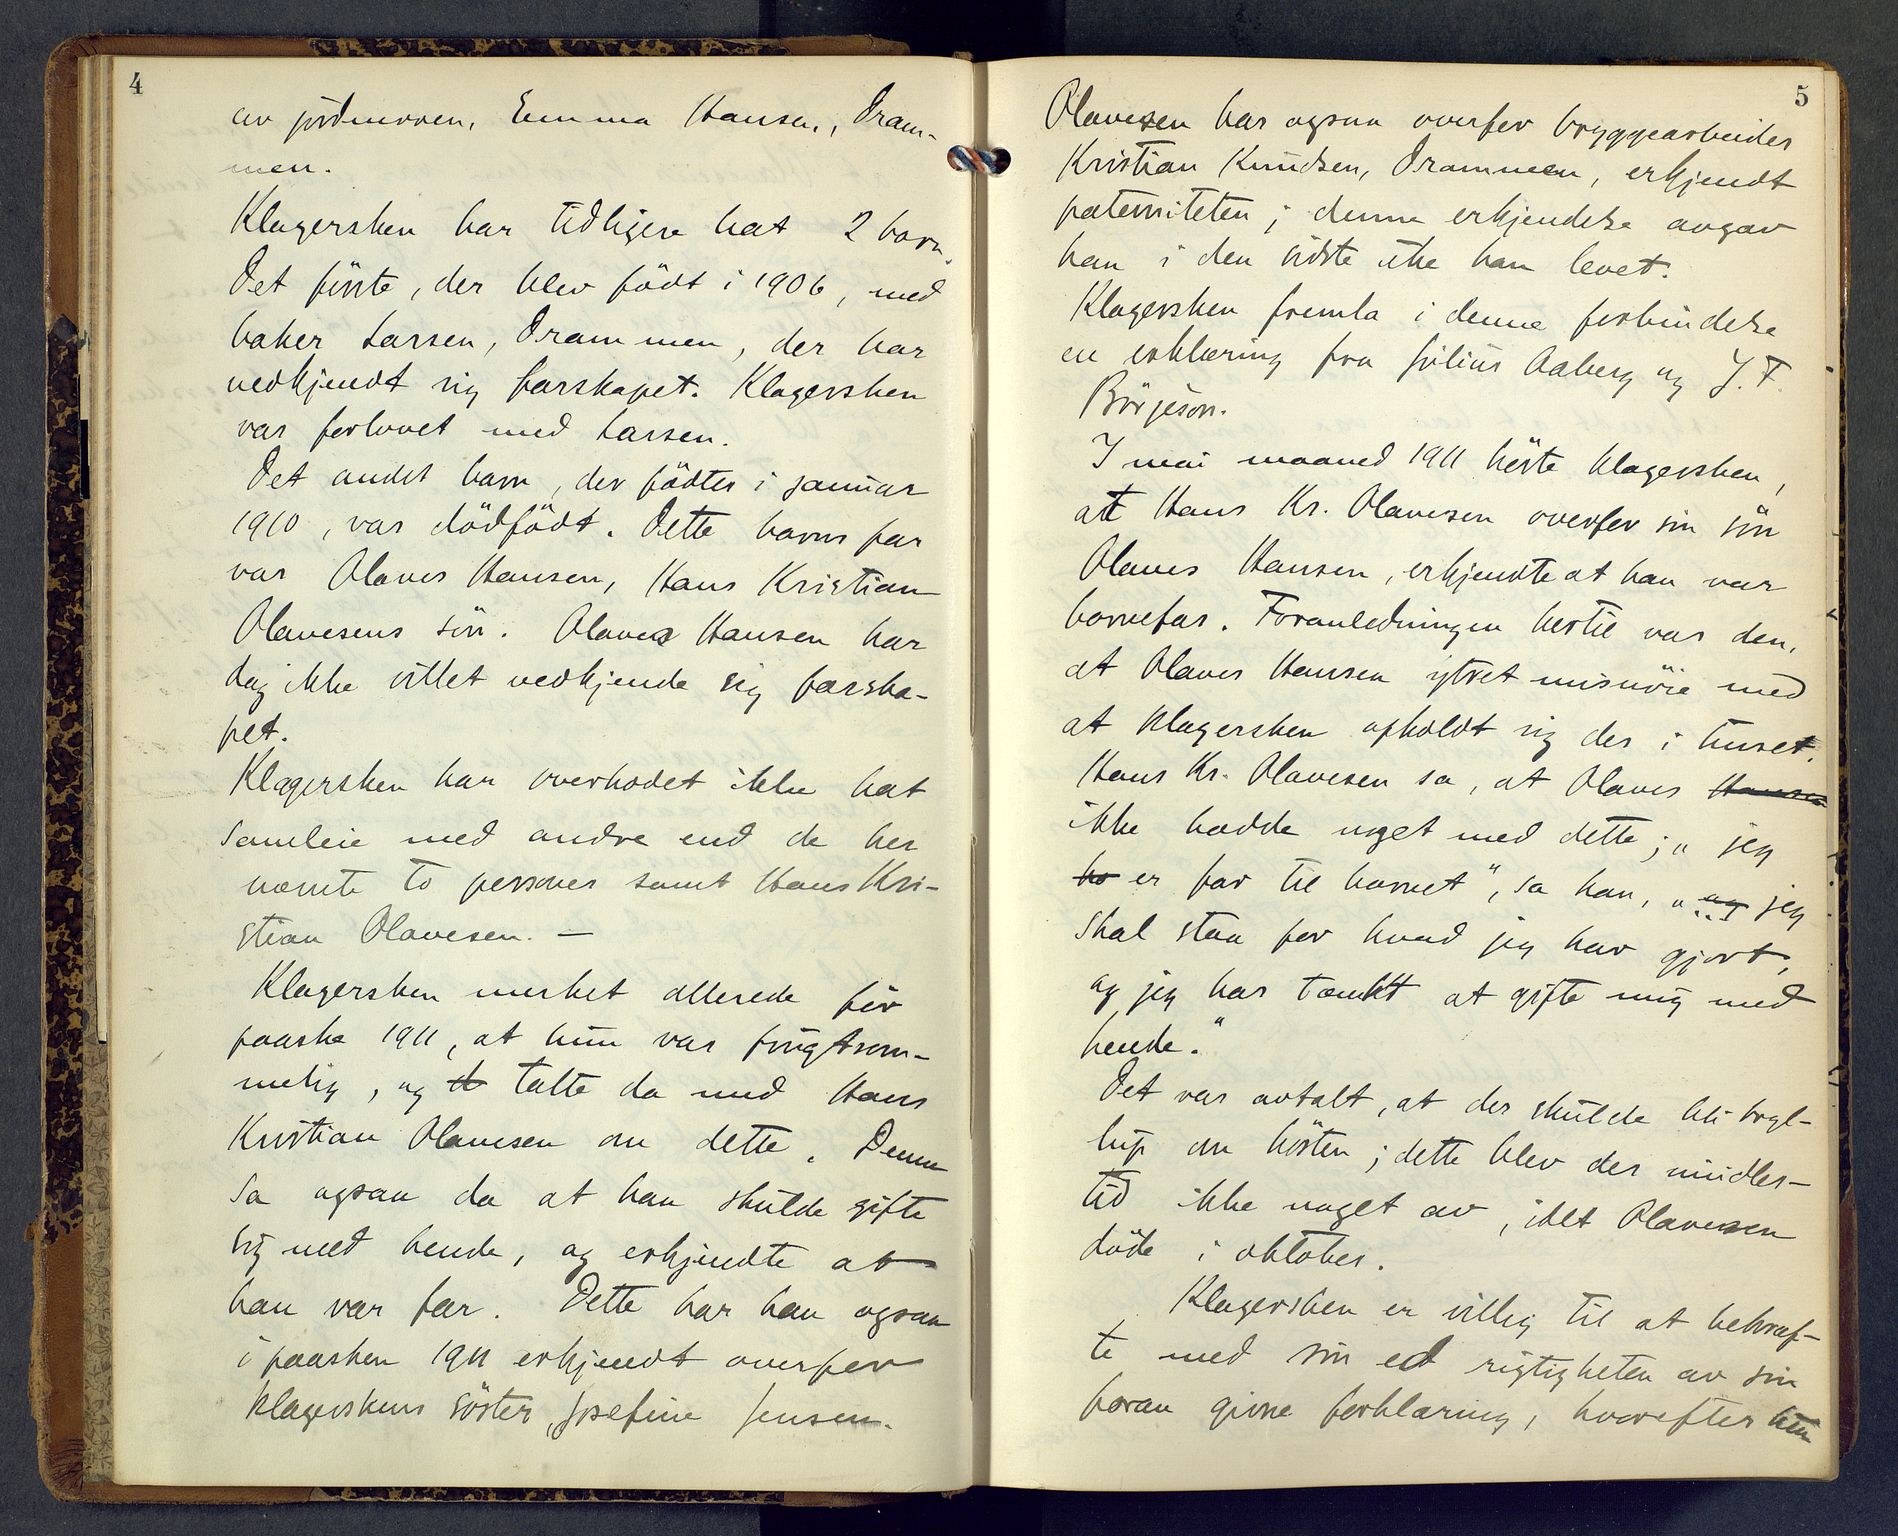 4
av jordmoren, Emma Hansen, Dram-
men.
Klagersken har tidligere hat 2 barn.
Det første, der blev født i 1906, med
baker Larsen, Drammen, der har
vedkjendt sig farskapet. Klagersken
var forlovet med Larsen.
Det andet barn, der fødtes i januar
1910, var dødfødt. Dette barns far
var Olaves Hansen, Hans Kristian
Olavesens søn. Olaves Hansen har
dog ikke villet vedkjende sig farska-
pet.
Klagersken har overhodet ikke hat
samleie med andre end de her
nævnte to personer samt Hans Kri-
stian Olavesen. —
Klagersken merket allerede før
paaske 1911, at hun var frugtsom-
melig, og talte da med Hans
Kristian Olavesen om dette. Denne
sa ogsaa da at han skulde gifte
sig med hende, og erkjendte at
han var far. Dette har han ogsaa
i paasken 1911 erkjendt overfor
klagerskens søster, Josefine Jensen.
5
Olavesen har ogsaa overfor bryggearbeider
Kristian Knudsen, Drammen, erkjendt
paterniteten; denne erkjendelse avgav
han i den sidste uke han levet.
Klagersken fremla i denne forbindelse
en erklæring fra Julius Aaberg og J. F.
Børjeson.
I mai maaned 1911 hørte klagersken,
at Hans Kr. Olavesen overfor sin søn
Olaves Hansen, erkjendte at han var
barnefar. Foranledningen hertil var den,
at Olaves Hansen ytret misnøie med
at klagersken opholdt sig der i huset.
Hans Kr. Olavesen sa, at Olaves Hansen
ikke hadde noget med dette; „jeg
ha er far til barnet", sa han, „og jeg
skal staa for hvad jeg har gjort,
og jeg har tænkt at gifte mig med
hende."
Det var avtalt, at der skulde bli bryl-
lup om høsten; dette blev der imidler-
tid ikke noget av, idet Olavesen
døde i oktober.
Klagersken er villig til at bekræf-
te med sin ed rigtigheten av sin
foran givne forklaring, hvorefter hun